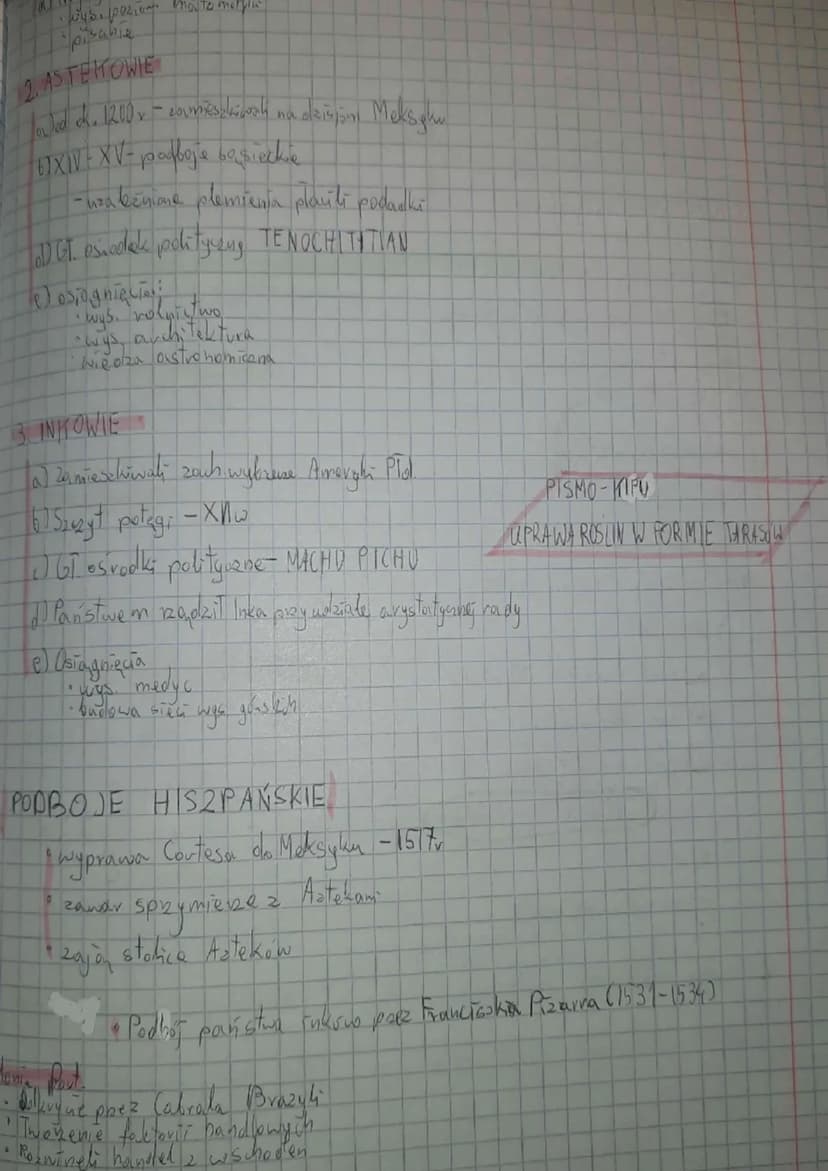 · wys. poziom matematyki
· pisanie
2. ASTEKOWIE
a) od ok. 1200 r - zamieszkiwali na dzisiejsz Meksyku
b) XIV - XV - podboje sąsieckie
- uzależnione plemienia płaciłi podadki
d) Gł. ośrodek polityczny TENOCHTITIAN
e) osiągnięcia:
· wys. rolnictwo
· wys. architektura
· wiedza astronomiczna
3. INKOWIE
a) Zamieszkiwali zach. wybrzeże Ameryki Płd.
b) Szczyt potęgi - XVw
PISMO - KIPU
UPRAWA ROSLIN W FORMIE TARASÓW
c) Gł ośrodki polityczne - MACHU PICHU
d) Państwem rządził Inka przy udziale arystotycznej rady
e) Osiągnięcia
· wys. medyc
· budowa sieci wys. górskich
PODBOJE HISZPAŃSKIE
· wyprawa Cortesa do Meksyku - 1517r
· zawar sprzymierze z Aztekami
· zajął stolice Azteków
· Podbój państwa Inków przez Franciszka Pizarra (1531-1534)
Port.
· Odkrycie przez Cabrala Brazyli
· Tworzenie faktorii handlowych
· Rozwineli handel z wschoden